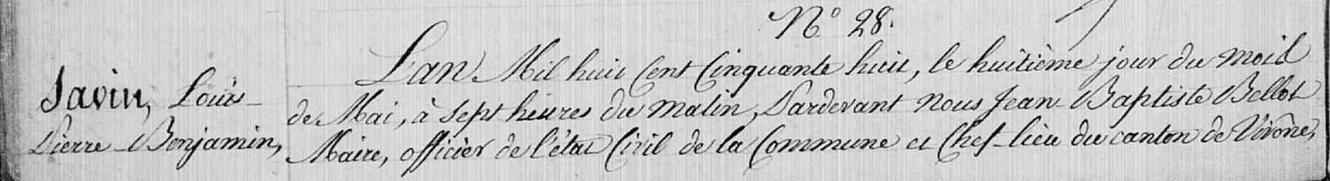 N° 28.
Savin, Louis
Pierre Benjamin,
L'an Mil huit Cent Cinquante huit, le huitième jour du mois
de Mai, à sept heures du matin, Pardevant Nous Jean-Baptiste Bellot
Maire, officier de l'état Civil de la Commune et Chef-lieu du canton de Vivône,